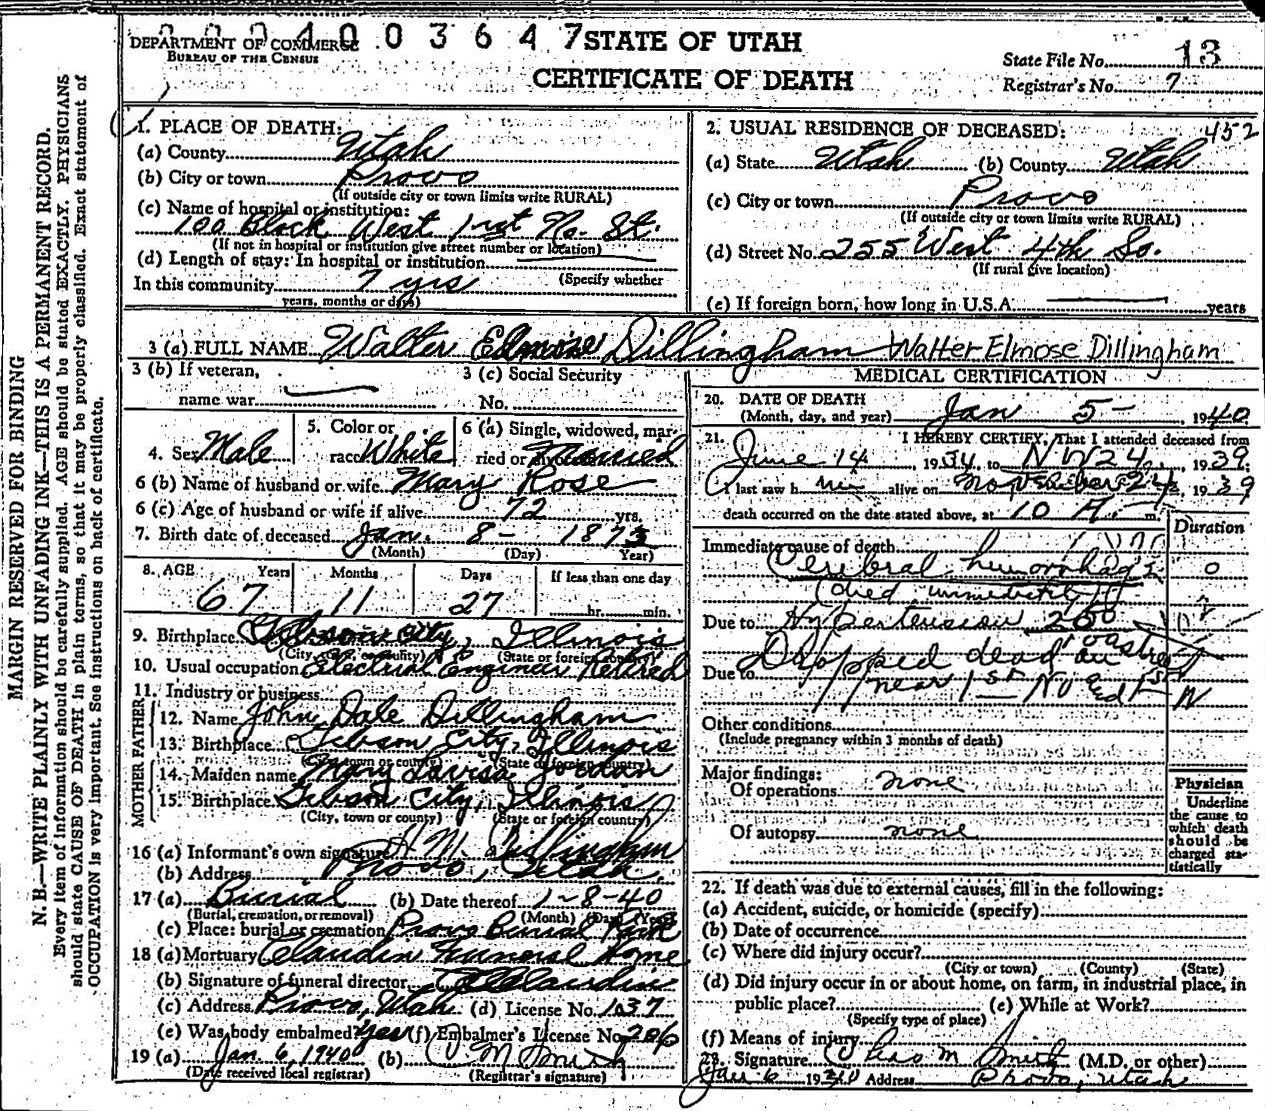 DEPARTMENT OF COMMERCE
BUREAU OF THE CENSUS
0 0 0 4 0 0 3 6 4 7
STATE OF UTAH
CERTIFICATE OF DEATH
State File No. 13
Registrar's No. 7
MARGIN RESERVED FOR BINDING
N. B.—WRITE PLAINLY WITH UNFADING INK—THIS IS A PERMANENT RECORD.
Every item of information should be carefully supplied. AGE should be stated EXACTLY. PHYSICIANS
should state CAUSE OF DEATH in plain terms, so that it may be properly classified. Exact statement of
OCCUPATION is very important. See instructions on back of certificate.
1. PLACE OF DEATH:
(a) County Utah
(b) City or town Provo
(If outside city or town limits write RURAL)
(c) Name of hospital or institution:
100 Block West 1st No. St.
(If not in hospital or institution give street number or location)
(d) Length of stay: In hospital or institution
(Specify whether
In this community 7 yrs
years, months or days)
2. USUAL RESIDENCE OF DECEASED: 452
(a) State Utah (b) County Utah
(c) City or town Provo
(If outside city or town limits write RURAL)
(d) Street No. 255 West 4th So.
(If rural give location)
(e) If foreign born, how long in U.S.A. years
3 (a) FULL NAME Walter Elmose Dillingham Walter Elmose Dillingham
3 (b) If veteran,
name war
3 (c) Social Security
No.
4. Sex Male
5. Color or
race White
6 (a) Single, widowed, mar-
ried or divorced Married
6 (b) Name of husband or wife Mary Rose
6 (c) Age of husband or wife if alive 72 yrs.
7. Birth date of deceased Jan. 8- 1873
(Month) (Day) Year)
8. AGE Years Months Days If less than one day
67 11 27 hr. min.
9. Birthplace Gibson City, Illinois
(City, town, or county) (State or foreign country)
10. Usual occupation Electrical Engineer Retired
11. Industry or business
FATHER
12. Name John Dale Dillingham
13. Birthplace Gibson City, Illinois
(City, town or county) (State or foreign country)
MOTHER
14. Maiden name Mary Jordan
15. Birthplace Gibson City, Illinois
(City, town or county) (State or foreign country)
16 (a) Informant's own signature H. M. Dillingham
(b) Address Provo, Utah.
17 (a) Burial (b) Date thereof 1-8-40
(Burial, cremation, or removal) (Month) (Day) (Year)
(c) Place: burial or cremation Provo Burial Park
18 (a) Mortuary Claudin Funeral Home
(b) Signature of funeral director Claudin
(c) Address Provo, Utah (d) License No. 1037
(e) Was body embalmed? Yes (f) Embalmer's License No. 206
19 (a) Jan 6, 1940 (b) M Smith
(Date received local registrar) (Registrar's signature)
MEDICAL CERTIFICATION
20. DATE OF DEATH
(Month, day, and year) Jan 5- 1940
21. I HEREBY CERTIFY, That I attended deceased from
June 14, 1934, to Nov 24, 1939.
I last saw him alive on November 24, 1939
death occurred on the date stated above, at 10 A. m.
Duration
Immediate cause of death
Cerebral hemorrhage 0
(died immediately)
Due to Hypertension 260
Due to Dropped dead on street
near 1st No
Other conditions
(Include pregnancy within 3 months of death)
Major findings:
Of operations none
Of autopsy none
Physician
Underline
the cause to
which death
should be
charged sta-
tistically
22. If death was due to external causes, fill in the following:
(a) Accident, suicide, or homicide (specify)
(b) Date of occurrence
(c) Where did injury occur?
(City or town) (County) (State)
(d) Did injury occur in or about home, on farm, in industrial place, in
public place? (e) While at Work?
(Specify type of place)
(f) Means of injury
23. Signature Chas M. Smith (M.D. or other)
Jan 6 1940 Address Provo, Utah